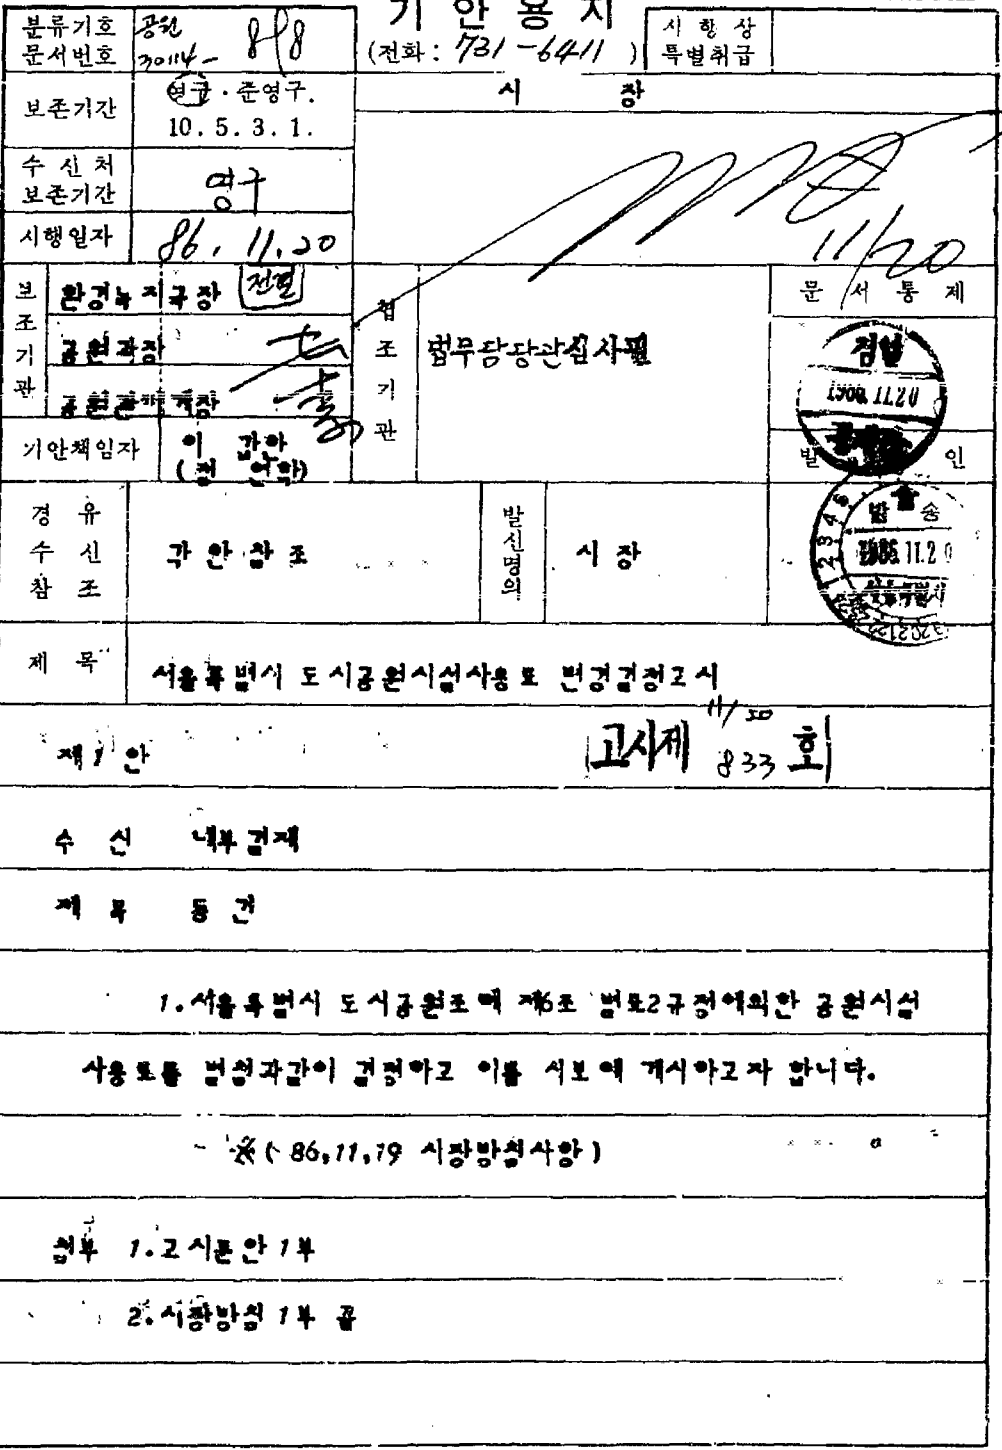 기안용지
분류기호 문서번호 공원 30114- 818
(전화 : 731-6411 )
시행상 특별취급
보존기간 영구 · 준영구. 10. 5. 3. 1.
시 장
수신처 보존기간 영구
시행일자 86. 11. 20
11/20
보조기관 환경녹지국장 전결
공원과장
공원관리계장
기안책임자
협조기관 법무담당관심사필
문서통제
1986. 11. 20
발 인
발송
1986. 11. 20
경유 수신 참조 각안참조
발신명의 시장
제 목 서울특별시 도시공원시설사용료 변경결정고시
11/20
제1안 고시제 833 호
수 신 내부결재
제 목 동건
1. 서울특별시 도시공원조례 제6조 별표2규정에의한 공원시설
사용료를 별첨과같이 결정하고 이를 시보에 게시하고자 합니다.
※(86,11,19 시장방침사항)
첨부 1. 고시문안 1부
2. 시장방침 1부 끝